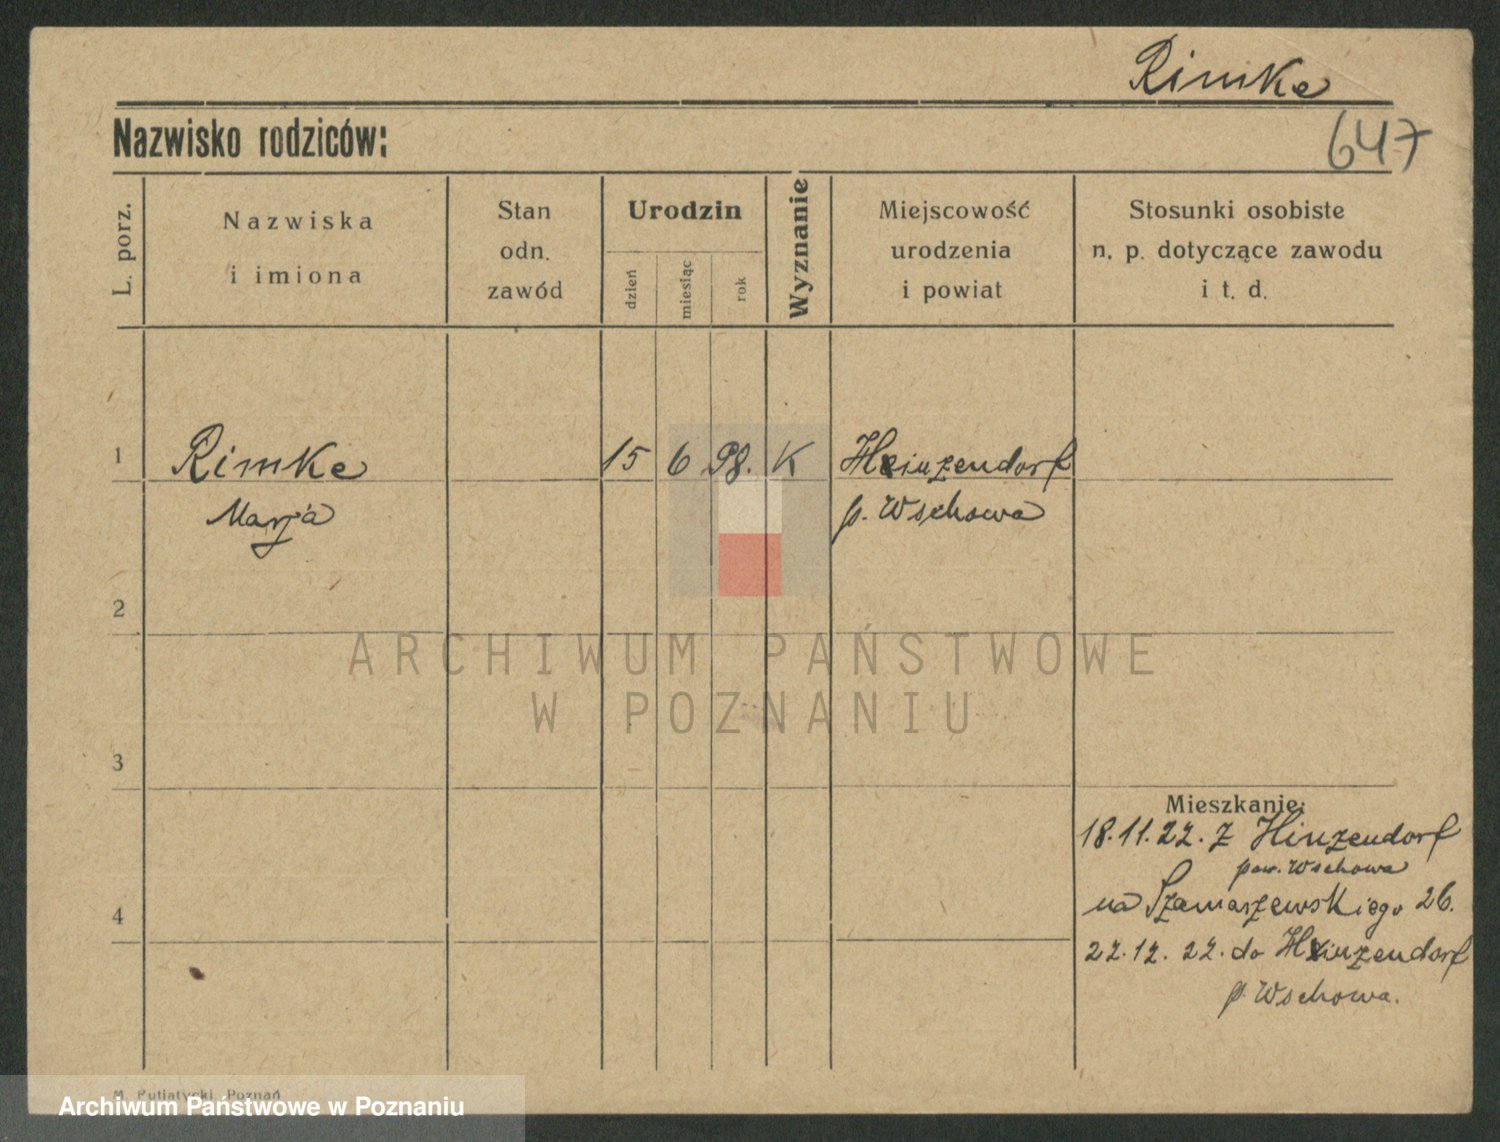 Rimke
647
Nazwisko rodziców:
L. porz.
Nazwiska
i imiona
Stan
odn.
zawód
Urodzin
dzień
miesiąc
rok
Wyznanie
Miejscowość
urodzenia
i powiat
Stosunki osobiste
n. p. dotyczące zawodu
i t. d.
1
Rimke 15 6 98. K Hinzendorf
Marja p. Wschowa
2
ARCHIWUM PAŃSTWOWE
W POZNANIU
3
Mieszkanie:
18.11.22. z Hinzendorf
pow. Wschowa
4
na Szamarzewskiego 26.
22.12.22. do Hinzendorf
p. Wschowa.
M. Putiatycki, Poznań
Archiwum Państwowe w Poznaniu